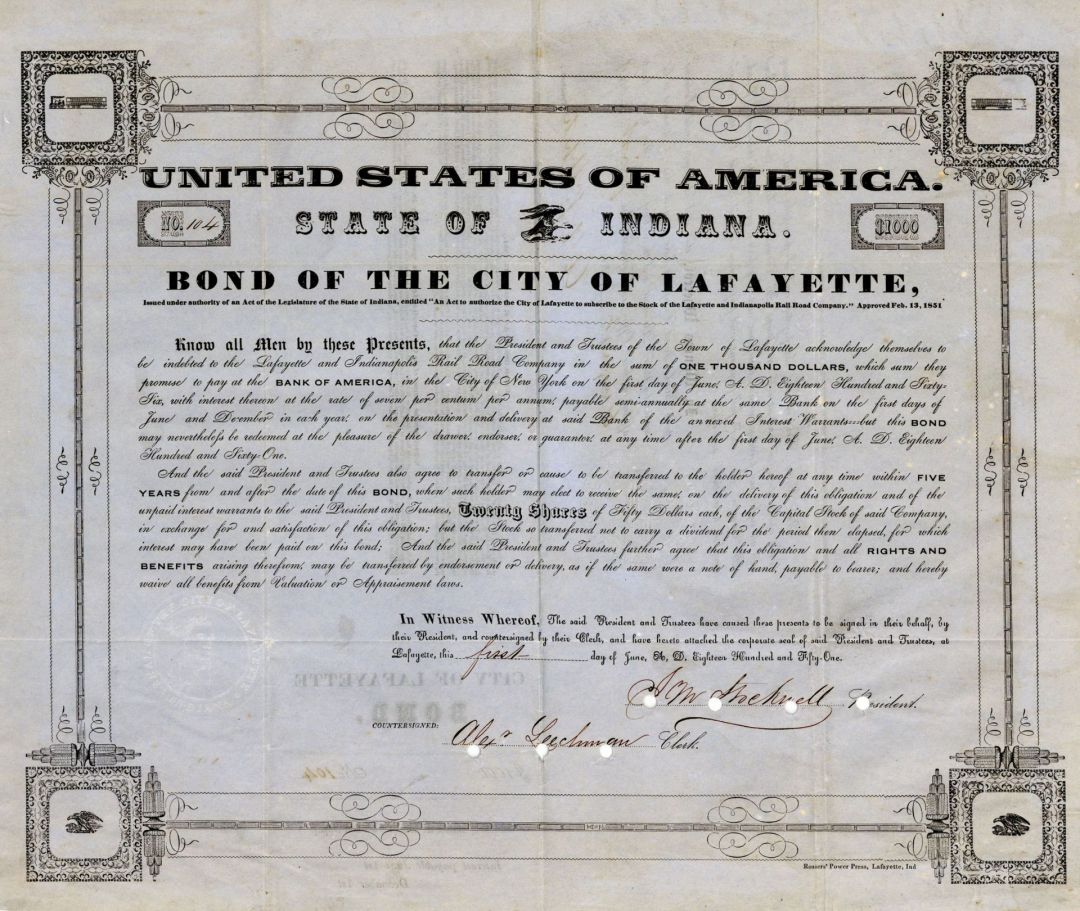 UNITED STATES OF AMERICA.
NO. 104
STATE OF INDIANA.
$1000
BOND OF THE CITY OF LAFAYETTE,
Issued under authority of an Act of the Legislature of the State of Indiana, entitled "An Act to authorize the City of Lafayette to subscribe to the Stock of the Lafayette and Indianapolis Rail Road Company." Approved Feb. 13, 1851
Know all Men by these Presents, that the President and Trustees of the Town of Lafayette acknowledge themselves to
be indebted to the Lafayette and Indianapolis Rail Road Company in the sum of ONE THOUSAND DOLLARS, which sum they
promise to pay at the BANK OF AMERICA, in the City of New York on the first day of June, A. D. Eighteen Hundred and Sixty-
Six, with interest thereon at the rate of seven per centum per annum, payable semi-annually at the same Bank on the first days of
June and December in each year, on the presentation and delivery at said Bank of the annexed Interest Warrants--but this BOND
may nevertheless be redeemed at the pleasure of the drawer, endorser, or guarantor, at any time after the first day of June, A. D. Eighteen
Hundred and Sixty-One.
And the said President and Trustees also agree to transfer or cause to be transferred to the holder hereof at any time within FIVE
YEARS from and after the date of this BOND, when such holder may elect to receive the same, on the delivery of this obligation and of the
unpaid interest warrants to the said President and Trustees, Twenty Shares of Fifty Dollars each, of the Capital Stock of said Company,
in exchange for and satisfaction of this obligation; but the Stock so transferred not to carry a dividend for the period then elapsed, for which
interest may have been paid on this bond; And the said President and Trustees further agree that this obligation and all RIGHTS AND
BENEFITS arising therefrom, may be transferred by endorsement or delivery, as if the same were a note of hand, payable to bearer; and hereby
waive all benefits from Valuation or Appraisement laws.
In Witness Whereof, The said President and Trustees have caused these presents to be signed in their behalf, by
their President, and countersigned by their Clerk, and have hereto attached the corporate seal of said President and Trustees, at
Lafayette, this first day of June, A. D. Eighteen Hundred and Fifty-One.
President.
COUNTERSIGNED: Alexr Leechman Clerk.
Rossers' Power Press, Lafayette, Ind